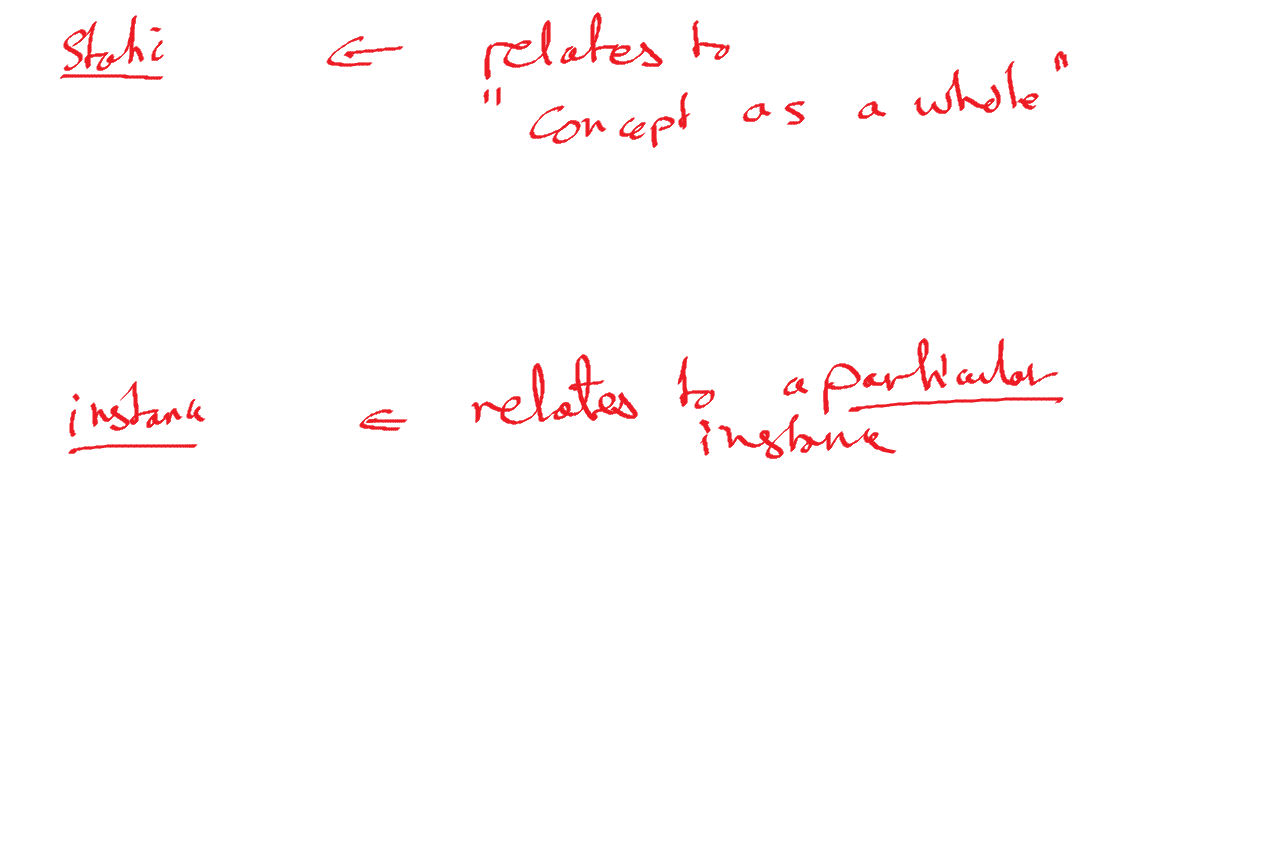 static ← relates to
"concept as a whole"
instance ← relates to a particular
instance